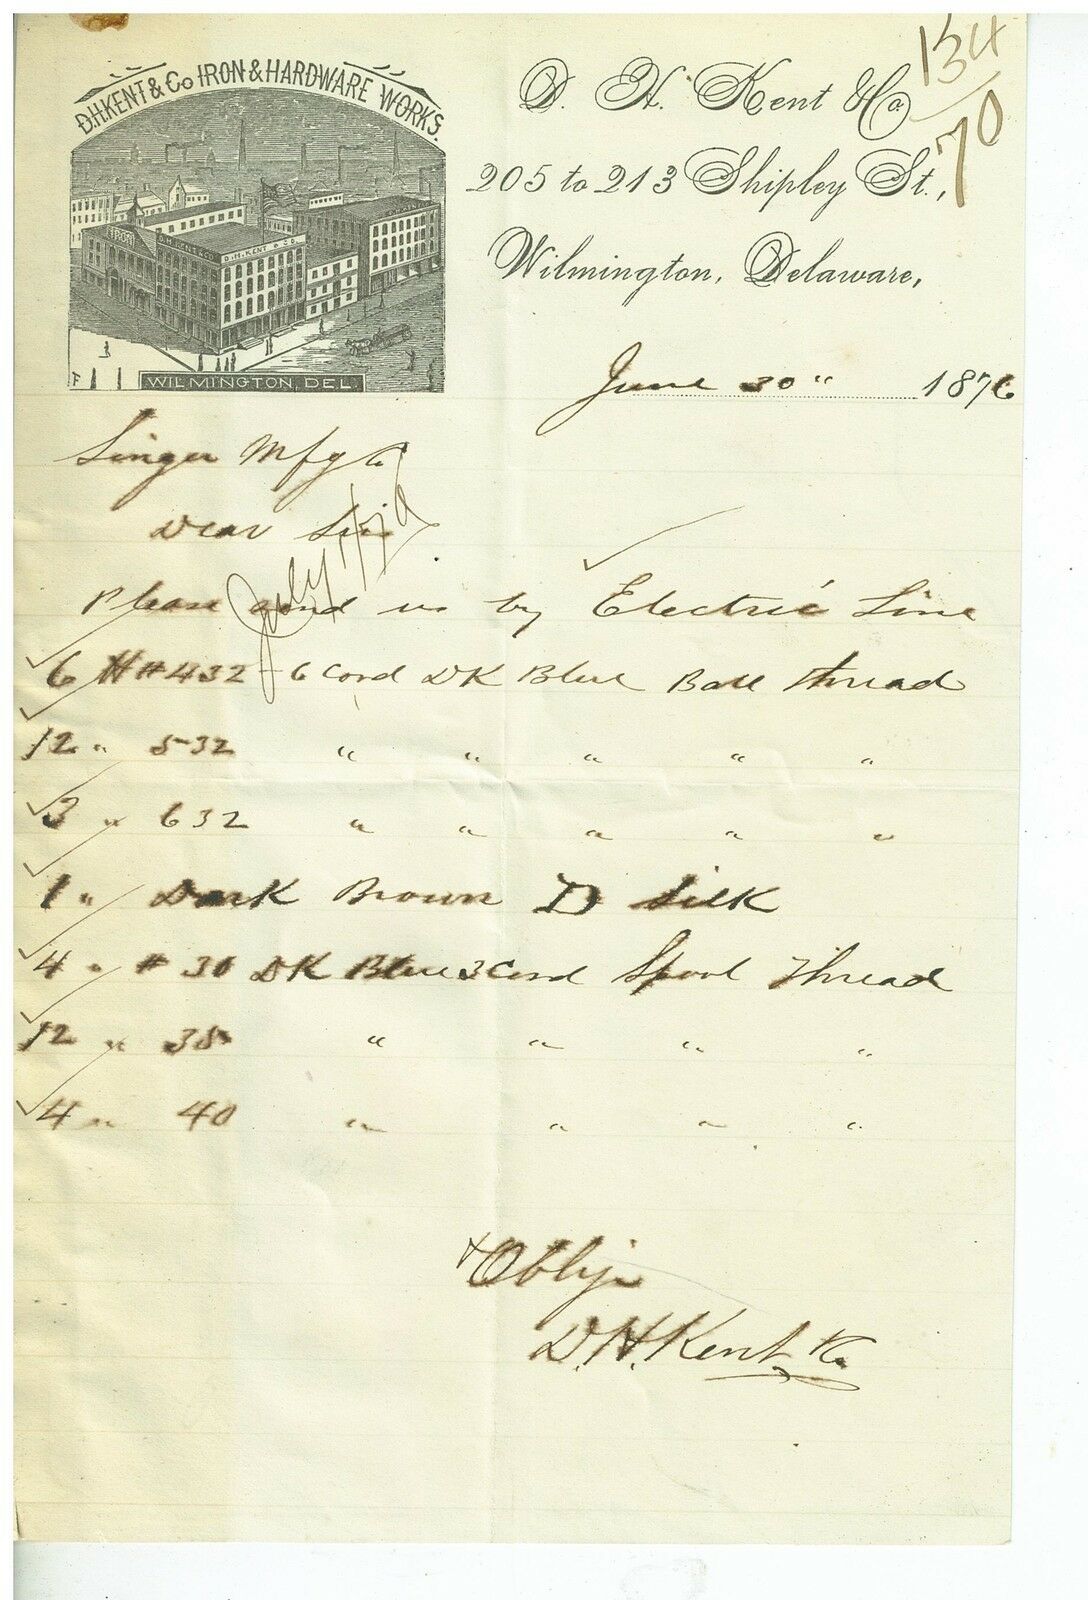 D.H.KENT & Co IRON & HARDWARE WORKS.
IRON
D.H. KENT & CO
D.H. KENT & CO.
WILMINGTON, DEL.
D. H. Kent & Co.
134
70
205 to 213 Shipley St.,
Wilmington, Delaware,
June 30 " 1876
Singer Mfg Co
Dear Sir
July 1/76
Please send us by Electric Line
6 # 432 - 6 Cord DK Blue Ball thread
12 " 532 " " " " "
3 " 632 " " " " "
1 " Dark Brown D Silk
4 " # 30 DK Blue 3 Cord Spool Thread
12 " 35 " " " "
4 " 40 " " " "
& Oblige
D. H. Kent & Co